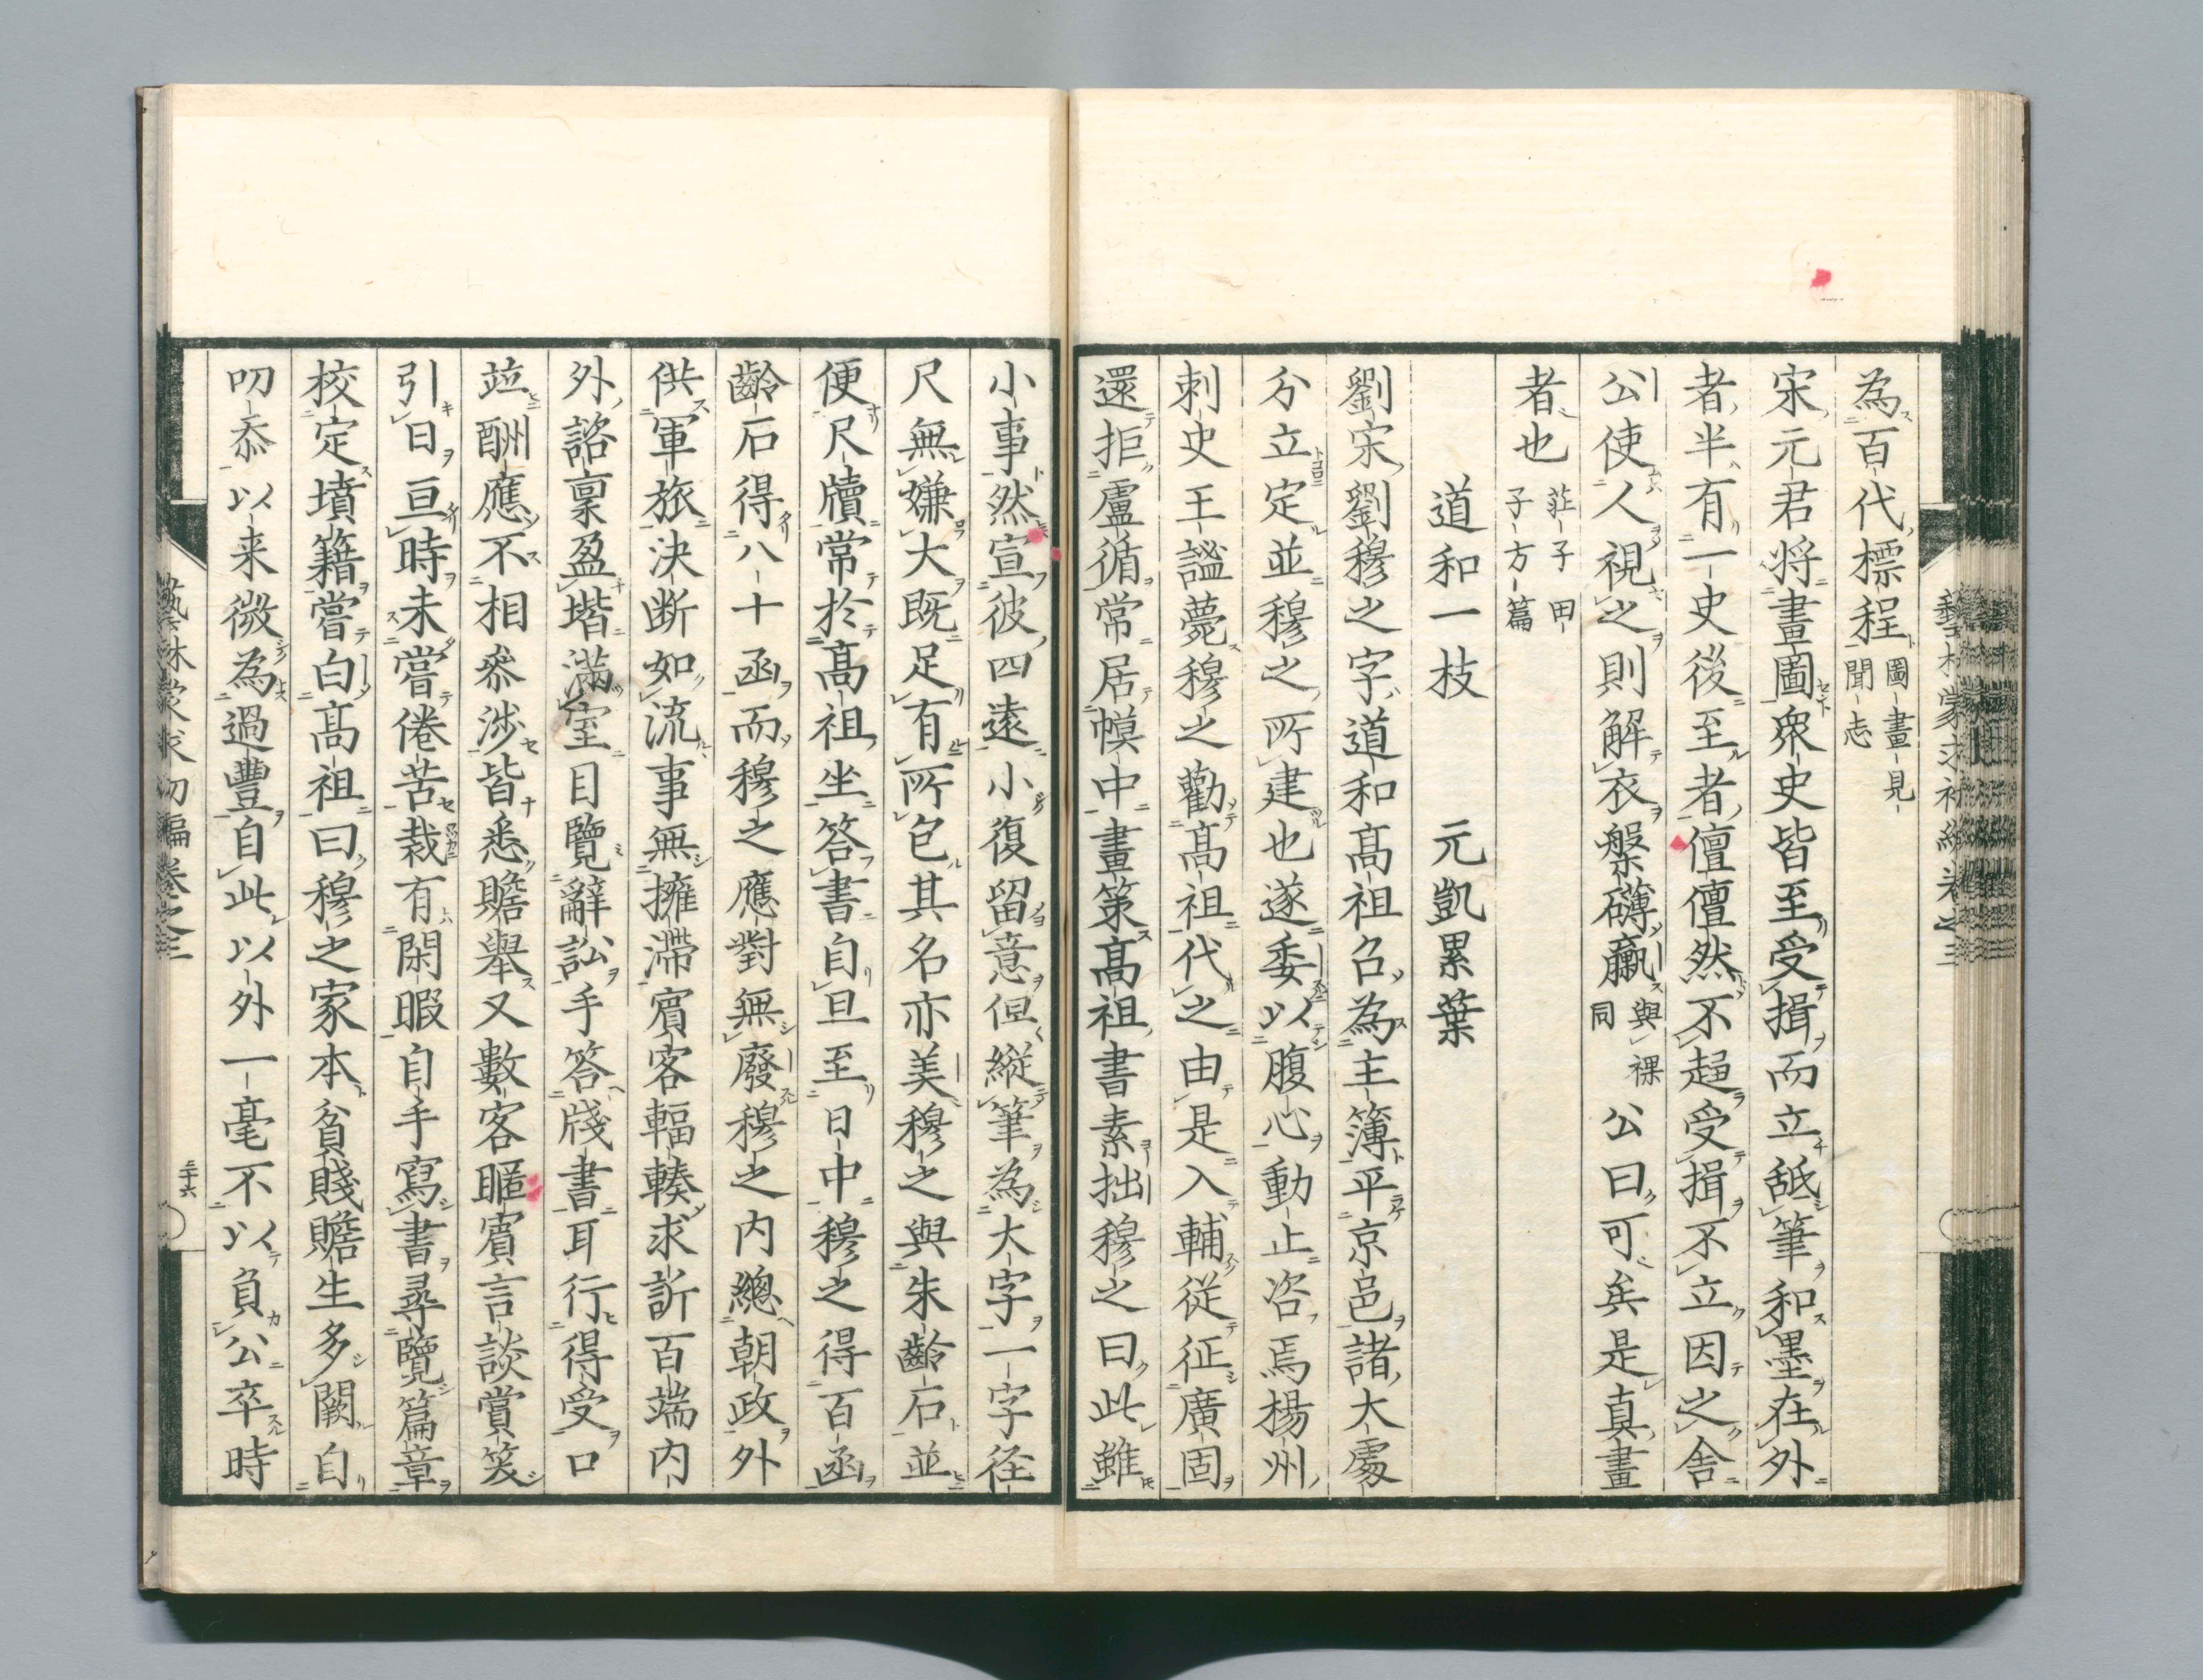 為百代標程圖畫見聞志
宋元君将畫圖衆史皆至受揖而立舐筆和墨在外
者半有一史後至者儃儃然不趨受揖不立因之舍
公使人視之則解衣槃礴臝與裸同公曰可矣是真畫
者也莊子田子方篇
道和一枝　元凱累葉
劉宋劉穆之字道和髙祖召為主簿平京邑諸大處
分立定並穆之所建也遂委以腹心動止咨焉楊州
刺史王謐薨穆之勸髙祖代之由是入輔従征廣固
還拒盧循常居幙中畫策髙祖書素拙穆之曰此雖
小事然宣彼四遠小復留意但縱筆為大字一字径
尺無嫌大既足有所包其名亦美穆之與朱齡石並
便尺牘常於髙祖坐答書自旦至日中穆之得百函
齡石得八十函而穆之應對無廢穆之内總朝政外
供軍旅決断如流事無擁滯賔客輻輳求訴百端内
外諮稟盈堦滿室目覽辭訟手答牋書耳行得受口
竝酬應不相叅涉皆悉贍舉又數客暱賔言談賞笑
引日亘時未嘗倦苦裁有閑暇自手寫書尋覽篇章
校定墳籍嘗白髙祖曰穆之家本貧賤贍生多闕自
叨忝以来微為過豐自此以外一毫不以負公卒時
三十六